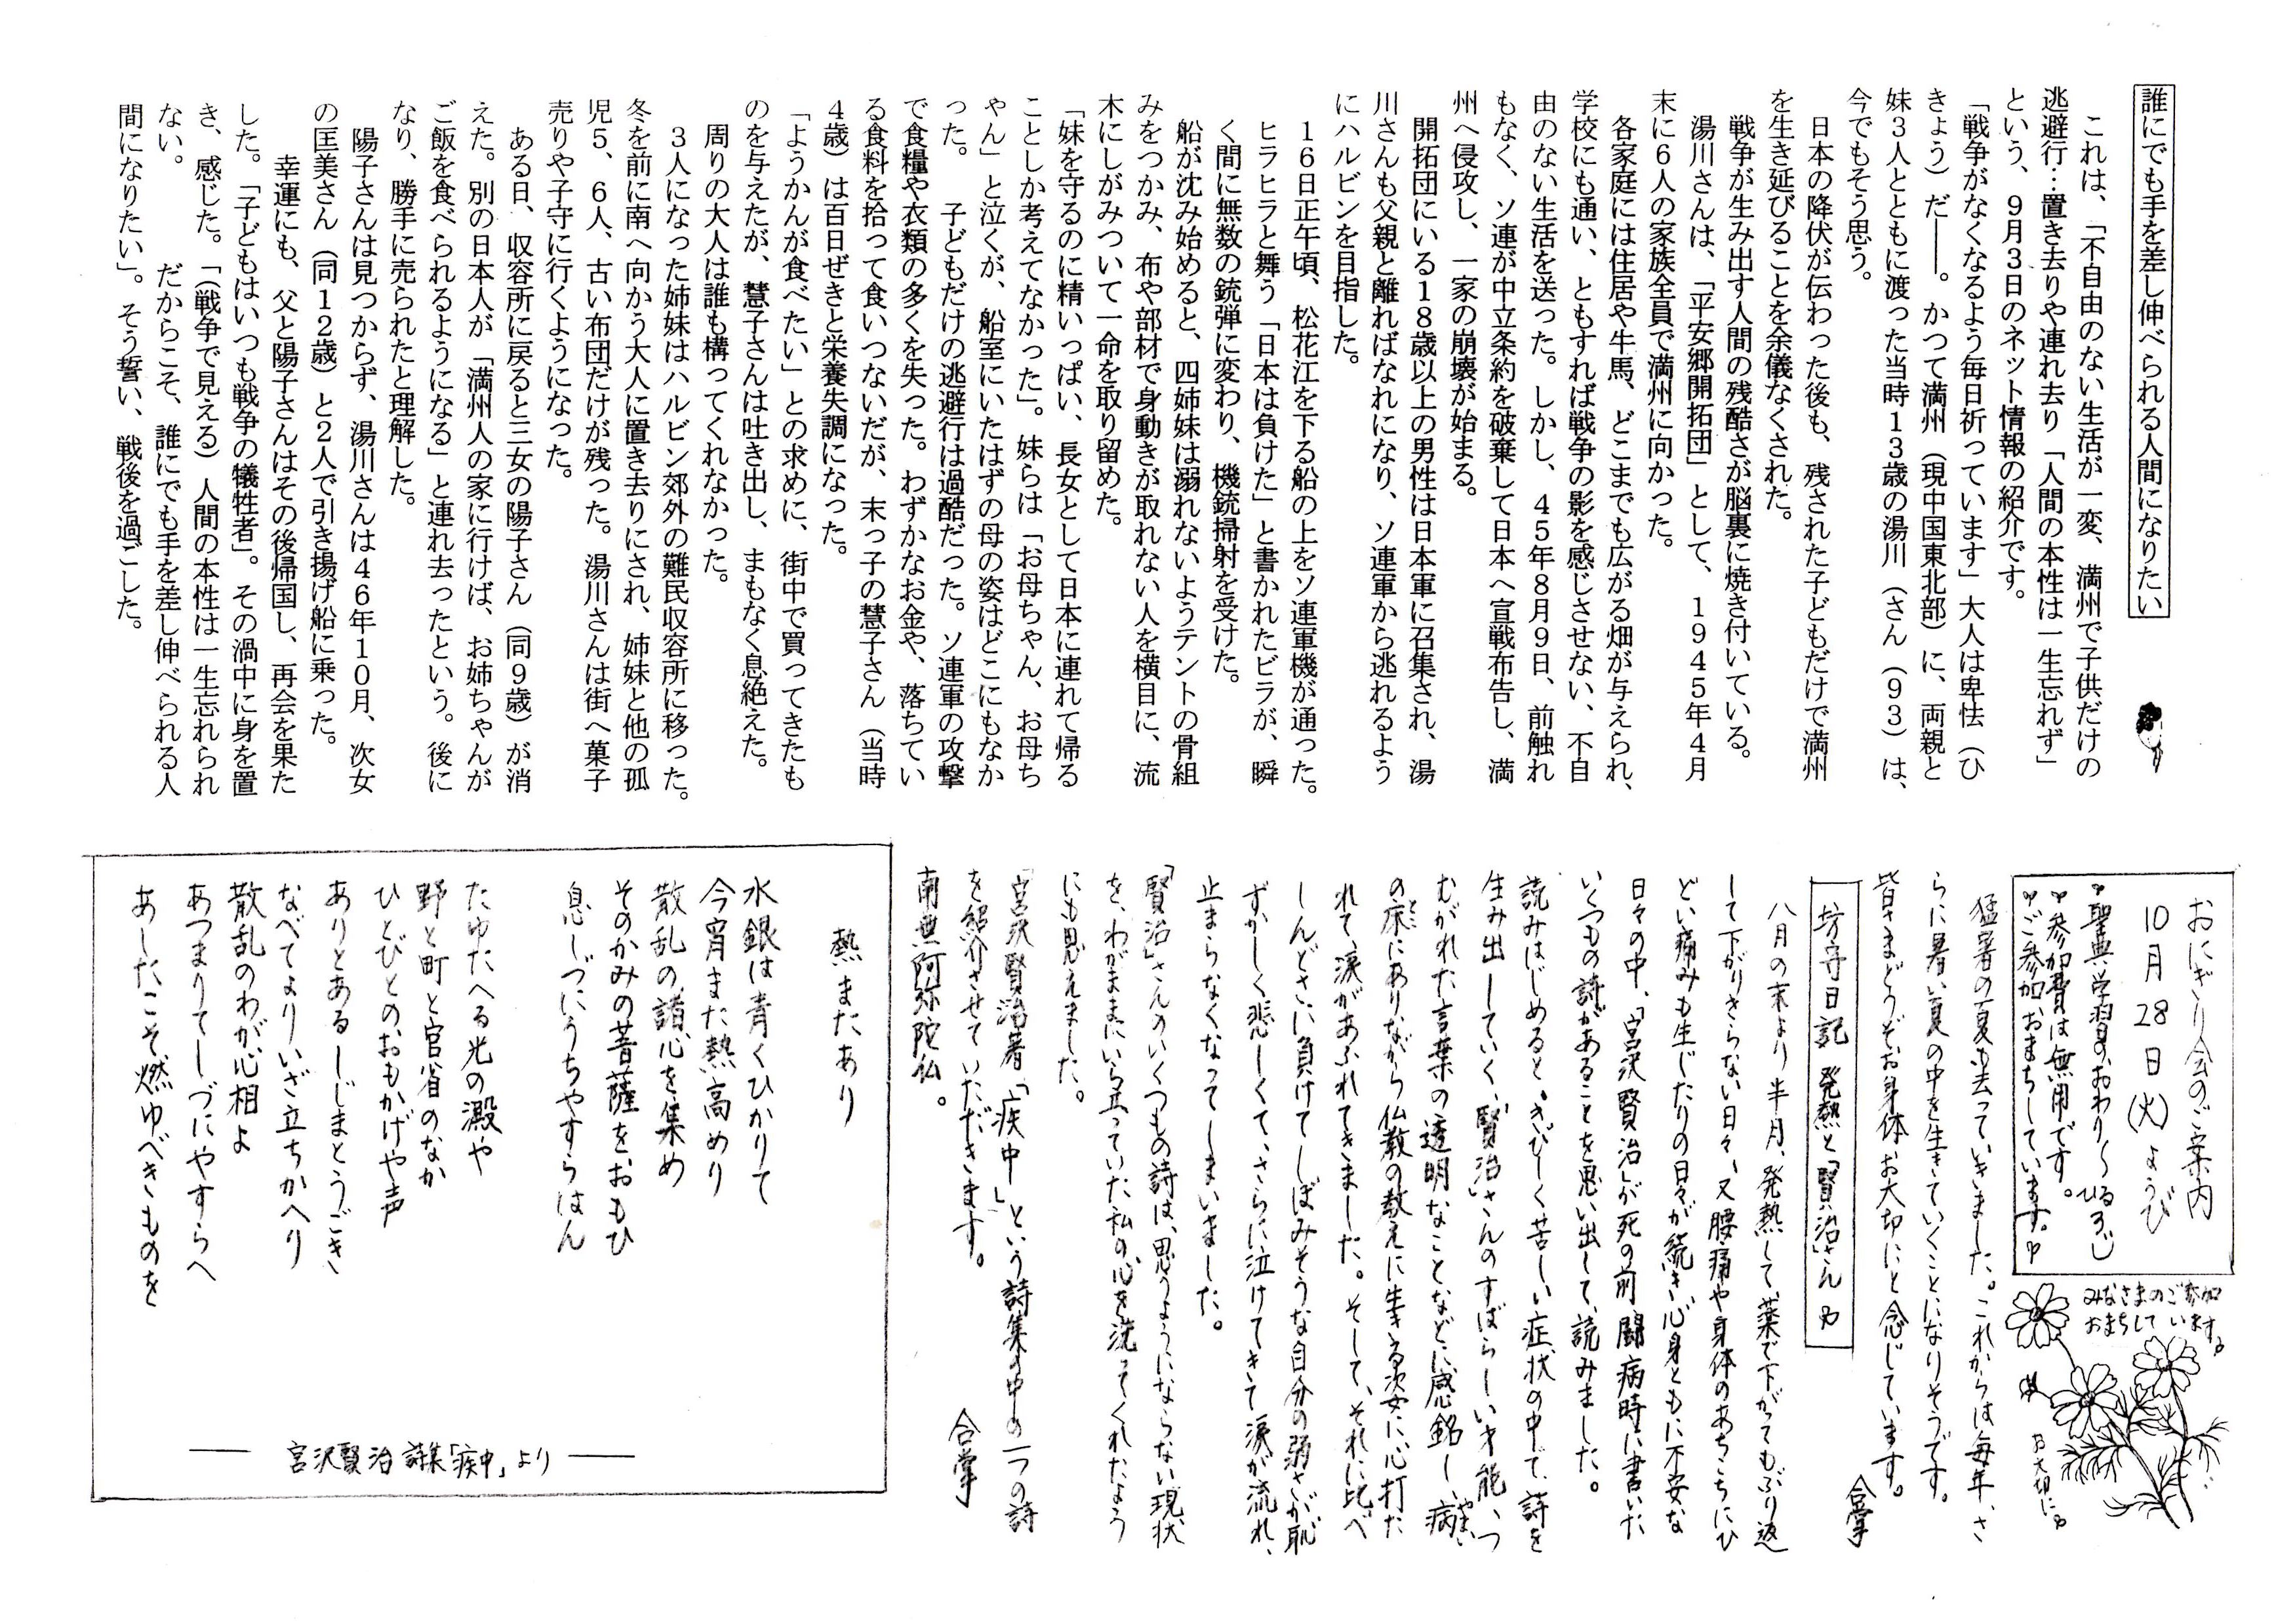 誰にでも手を差し伸べられる人間になりたい
これは、「不自由のない生活が一変、満州で子供だけの
逃避行…置き去りや連れ去り「人間の本性は一生忘れず」
という、９月３日のネット情報の紹介です。
「戦争がなくなるよう毎日祈っています」大人は卑怯（ひ
きょう）だ――。かつて満州（現中国東北部）に、両親と
妹３人とともに渡った当時１３歳の湯川（さん（９３）は、
今でもそう思う。
日本の降伏が伝わった後も、残された子どもだけで満州
を生き延びることを余儀なくされた。
戦争が生み出す人間の残酷さが脳裏に焼き付いている。
湯川さんは、「平安郷開拓団」として、１９４５年４月
末に６人の家族全員で満州に向かった。
各家庭には住居や牛馬、どこまでも広がる畑が与えられ、
学校にも通い、ともすれば戦争の影を感じさせない、不自
由のない生活を送った。しかし、４５年８月９日、前触れ
もなく、ソ連が中立条約を破棄して日本へ宣戦布告し、満
州へ侵攻し、一家の崩壊が始まる。
開拓団にいる１８歳以上の男性は日本軍に召集され、湯
川さんも父親と離ればなれになり、ソ連軍から逃れるよう
にハルビンを目指した。
１６日正午頃、松花江を下る船の上をソ連軍機が通った。
ヒラヒラと舞う「日本は負けた」と書かれたビラが、瞬
く間に無数の銃弾に変わり、機銃掃射を受けた。
船が沈み始めると、四姉妹は溺れないようテントの骨組
みをつかみ、布や部材で身動きが取れない人を横目に、流
木にしがみついて一命を取り留めた。
「妹を守るのに精いっぱい、長女として日本に連れて帰る
ことしか考えてなかった」。妹らは「お母ちゃん、お母ち
ゃん」と泣くが、船室にいたはずの母の姿はどこにもなか
った。　子どもだけの逃避行は過酷だった。ソ連軍の攻撃
で食糧や衣類の多くを失った。わずかなお金や、落ちてい
る食料を拾って食いつないだが、末っ子の慧子さん（当時
４歳）は百日ぜきと栄養失調になった。
「ようかんが食べたい」との求めに、街中で買ってきたも
のを与えたが、慧子さんは吐き出し、まもなく息絶えた。
周りの大人は誰も構ってくれなかった。
３人になった姉妹はハルビン郊外の難民収容所に移った。
冬を前に南へ向かう大人に置き去りにされ、姉妹と他の孤
児５、６人、古い布団だけが残った。湯川さんは街へ菓子
売りや子守に行くようになった。
ある日、収容所に戻ると三女の陽子さん（同９歳）が消
えた。別の日本人が「満州人の家に行けば、お姉ちゃんが
ご飯を食べられるようになる」と連れ去ったという。後に
なり、勝手に売られたと理解した。
陽子さんは見つからず、湯川さんは４６年１０月、次女
の匡美さん（同１２歳）と２人で引き揚げ船に乗った。
幸運にも、父と陽子さんはその後帰国し、再会を果た
した。「子どもはいつも戦争の犠牲者」。その渦中に身を置
き、感じた。「（戦争で見える）人間の本性は一生忘れられ
ない。　　だからこそ、誰にでも手を差し伸べられる人
間になりたい」。そう誓い、戦後を過ごした。
おにぎり会のご案内
10月28日(火)ようび
聖典学習のおわり〜ひる3じ
参加費は無用です。
ご参加おまちしています。
みなさまのご参加
おまちしています
お大切に
猛暑の夏も去っていきました。これからは毎年、さ
らに暑い夏の中を生きていくことになりそうです。
皆さまどうぞお身体お大切にと念じています。
合掌
坊守日記　発熱と「賢治」さん
八月の末より半月、発熱して、薬で下がってもぶり返
して下がりきらない日々、又腰痛や身体のあちこちにひ
どい痛みも生じたりの日々が続き、心身ともに不安な
日々の中、「宮沢賢治」が死の前闘病時に書いた
いくつもの詩があることを思い出して、読みました。
読みはじめると、きびしく苦しい症状の中で、詩を
生み出していく、「賢治」さんのすばらしい才能、つ
むがれた言葉の透明なことなどに感銘し、病
の床にありながら仏教の教えに生きる姿に心打た
れて、涙があふれてきました。そして、それに比べ
しんどさに負けてしぼみそうな自分の弱さが恥
ずかしく悲しくて、さらに泣けてきて涙が流れ、
止まらなくなってしまいました。
「賢治」さんのいくつもの詩は、思うようにならない現状
を、わがままにいら立っていた私の心を洗ってくれたよう
にも思えました。
「宮沢賢治著「疾中」という詩集の中の一つの詩
を紹介させていただきます。
南無阿弥陀仏。
合掌
熱またあり
水銀は青くひかりて
今宵また熱高めり
散乱の諸心を集め
そのかみの菩薩をおもひ
息しづにうちやすらはん
たゆたへる光の澱や
野と町と官省のなか
ひとびとのおもかげや声
ありとあるしじまとうごき
なべてよりいざ立ちかへり
散乱のわが心相よ
あつまりてしづにやすらへ
あしたこそ燃ゆべきものを
―― 宮沢賢治 詩集「疾中」より ――